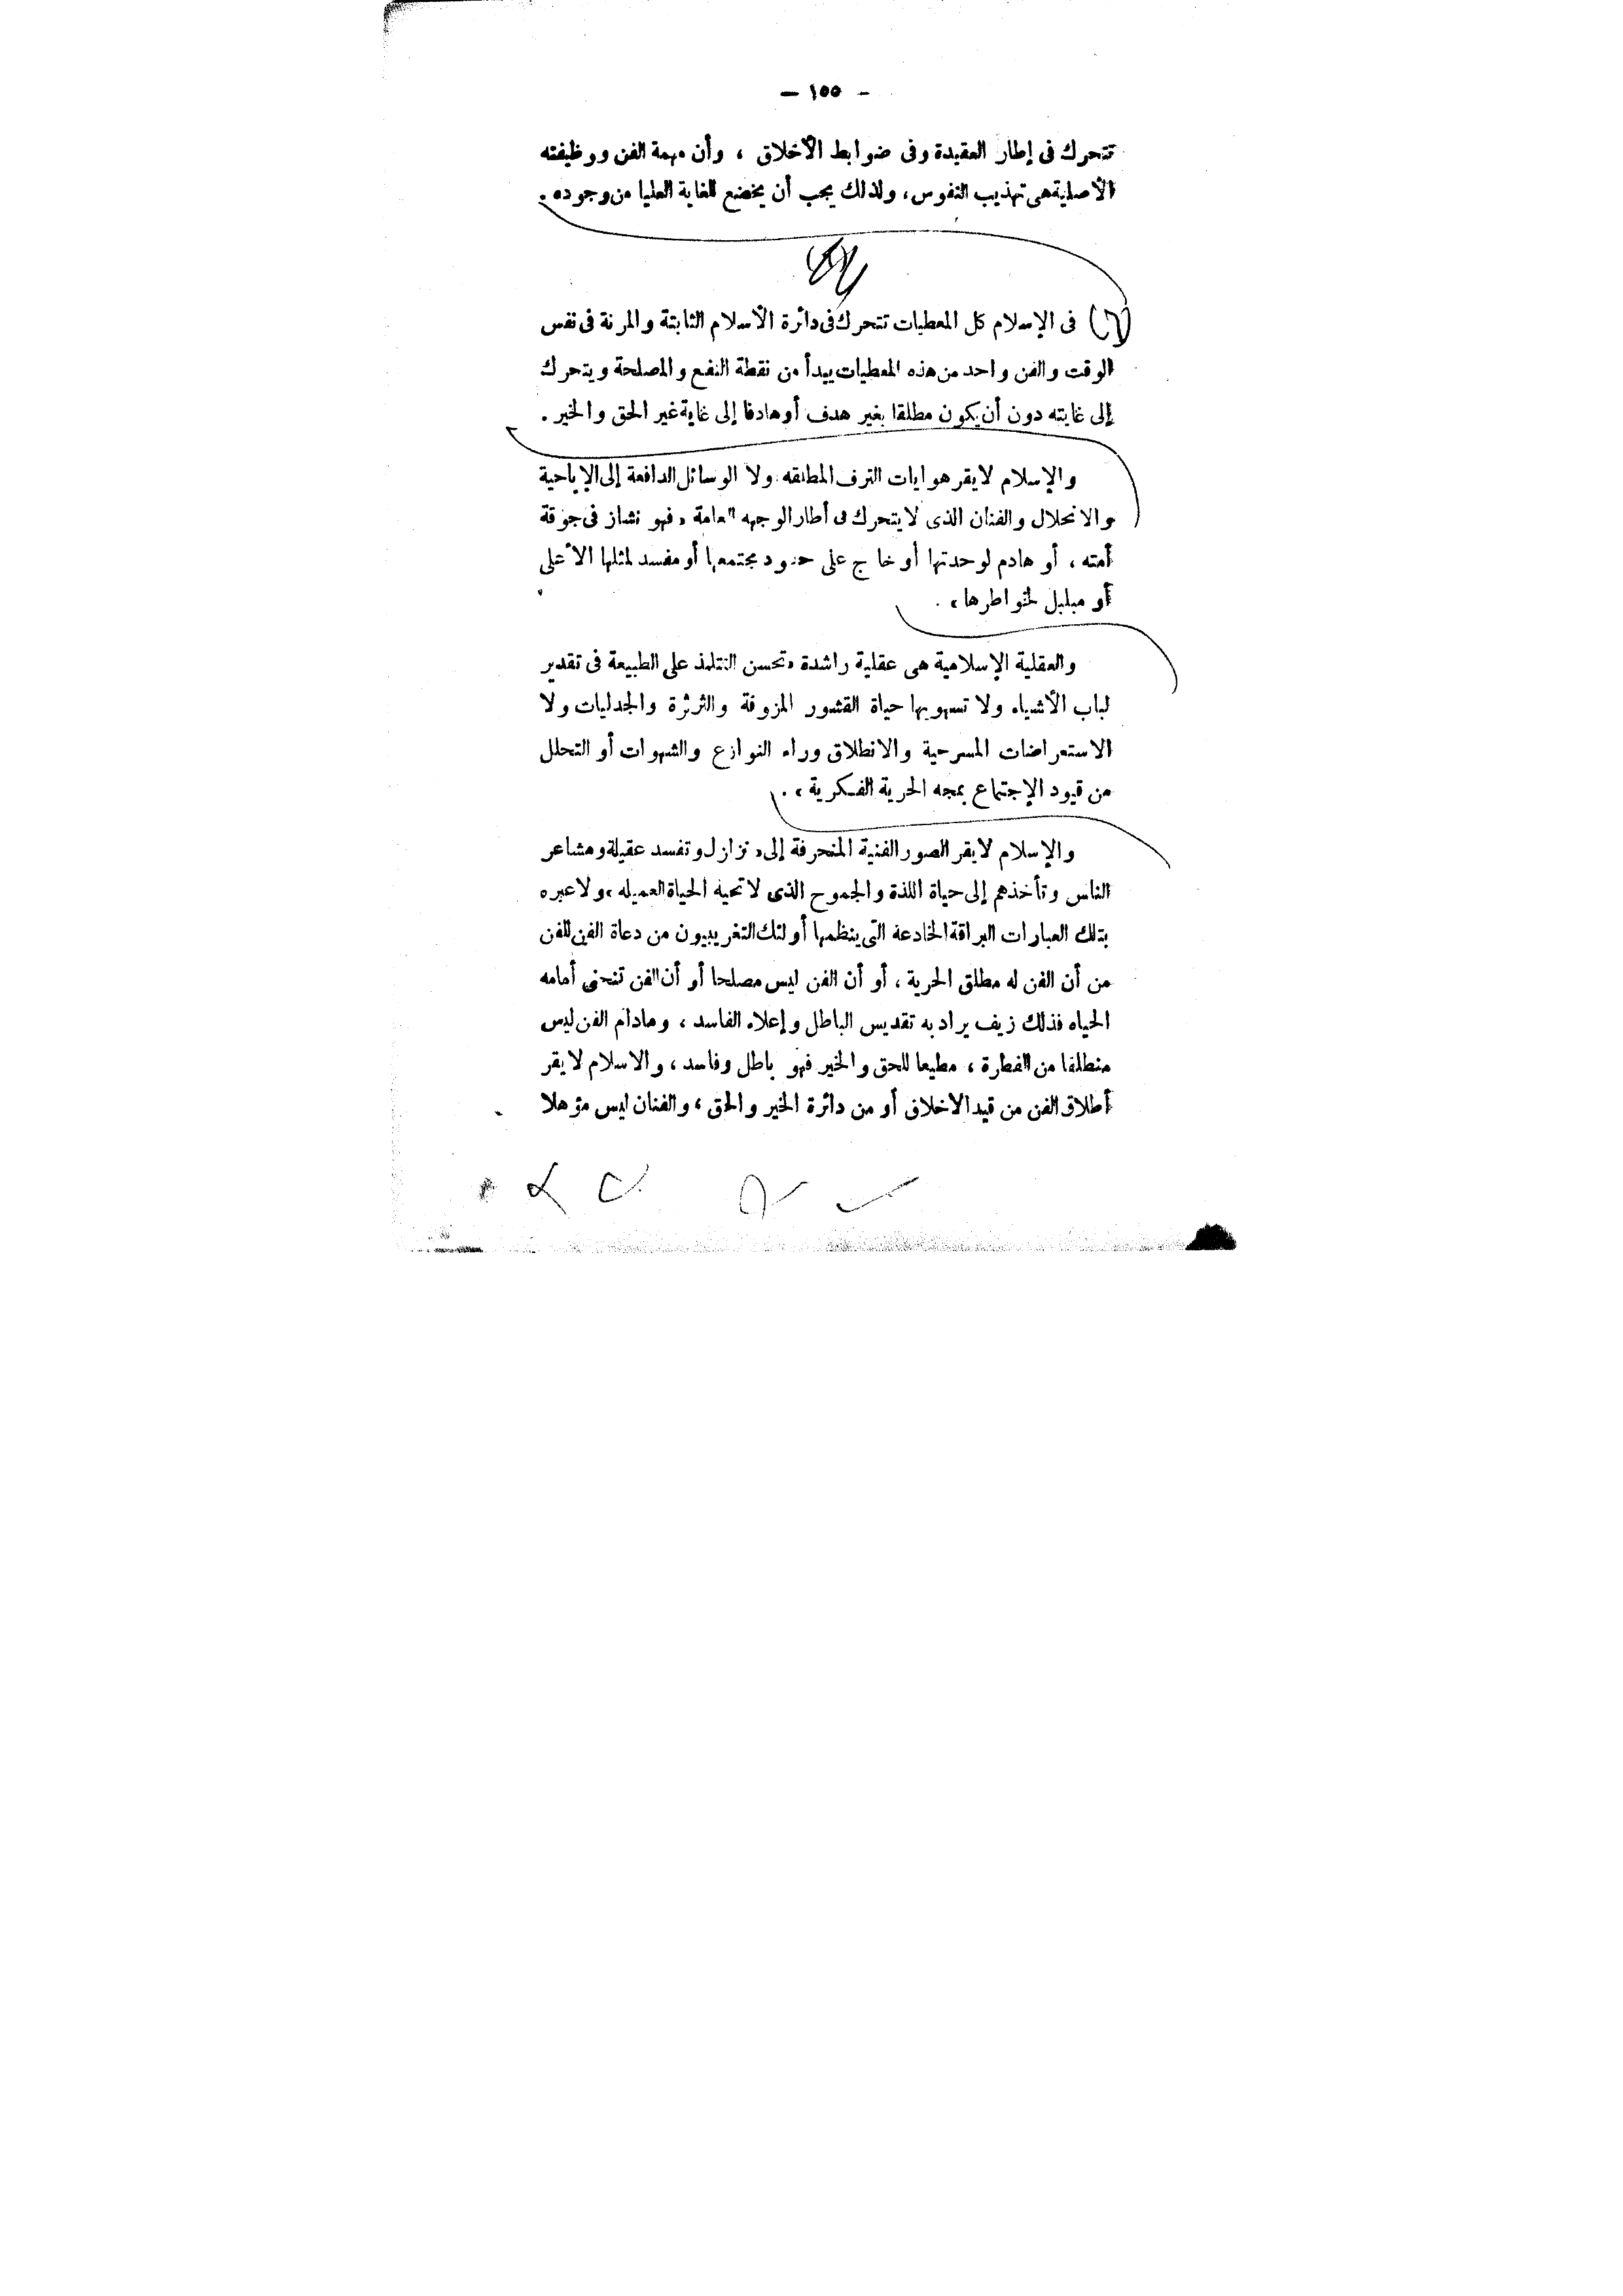 - ١٥٥ -
تتحرك فى إطار العقيدة وفى ضوابط الأخلاق ، وأن مهمة الفن ووظيفته
الأصلية هى تهذيب النفوس، ولذلك يجب أن يخضع للغاية العليا من وجوده .
فى الإسلام كل المعطيات تتحرك فى دائرة الأسلام الثابتة والمرنة فى نفس
الوقت والفن واحد من هذه المعطيات يبدأ من نقطة النفع والمصلحة ويتحرك
إلى غايته دون أن يكون مطلقا بغير هدف أو هادفا إلى غاية غير الحق والخير .
والإسلام لا يقر هوايات الترف المطلقه ولا الوسائل الدافعة إلى الإباحية
والانحلال والفنان الذى لا يتحرك فى أطار الوجهه العامة « فهو نشاز فى جوقة
أمته ، أو هادم لوحدتها أو خارج على حدود مجتمعها أو مفسد لمثلها الأعلى
أو مبلبل لخواطرها » .
والعقلية الإسلامية هى عقلية راشدة « تحسن التتلمذ على الطبيعة فى تقدير
لباب الأشياء ولا تستهويها حياة القشور المزوقة والثرثرة والجدليات ولا
الاستعراضات المسرحية والانطلاق وراء النوازع والشهوات أو التحلل
من قيود الإجتماع بمجه الحرية الفكرية » .
والإسلام لا يقر الصور الفنية المنحرفة إلى « تزازل وتفسد عقيلة ومشاعر
الناس وتأخذهم إلى حياة اللذة والجموح الذى لا تحيه الحياة العميله » ولا عبره
بتلك العبارات البراقة الخادعة التى ينظمها أولئك التغريبيون من دعاة الفن للفن
من أن الفن له مطلق الحرية ، أو أن الفن ليس مصلحا أو أن الفن تنحنى أمامه
الحياه فذلك زيف يراد به تقديس الباطل وإعلاء الفاسد ، ومادام الفن ليس
منطلقا من الفطرة ، مطيعا للحق والخير فهو باطل وفاسد ، والاسلام لا يقر
أطلاق الفن من قيد الاخلاق أو من دائرة الخير والحق ، والفنان ليس مؤهلا